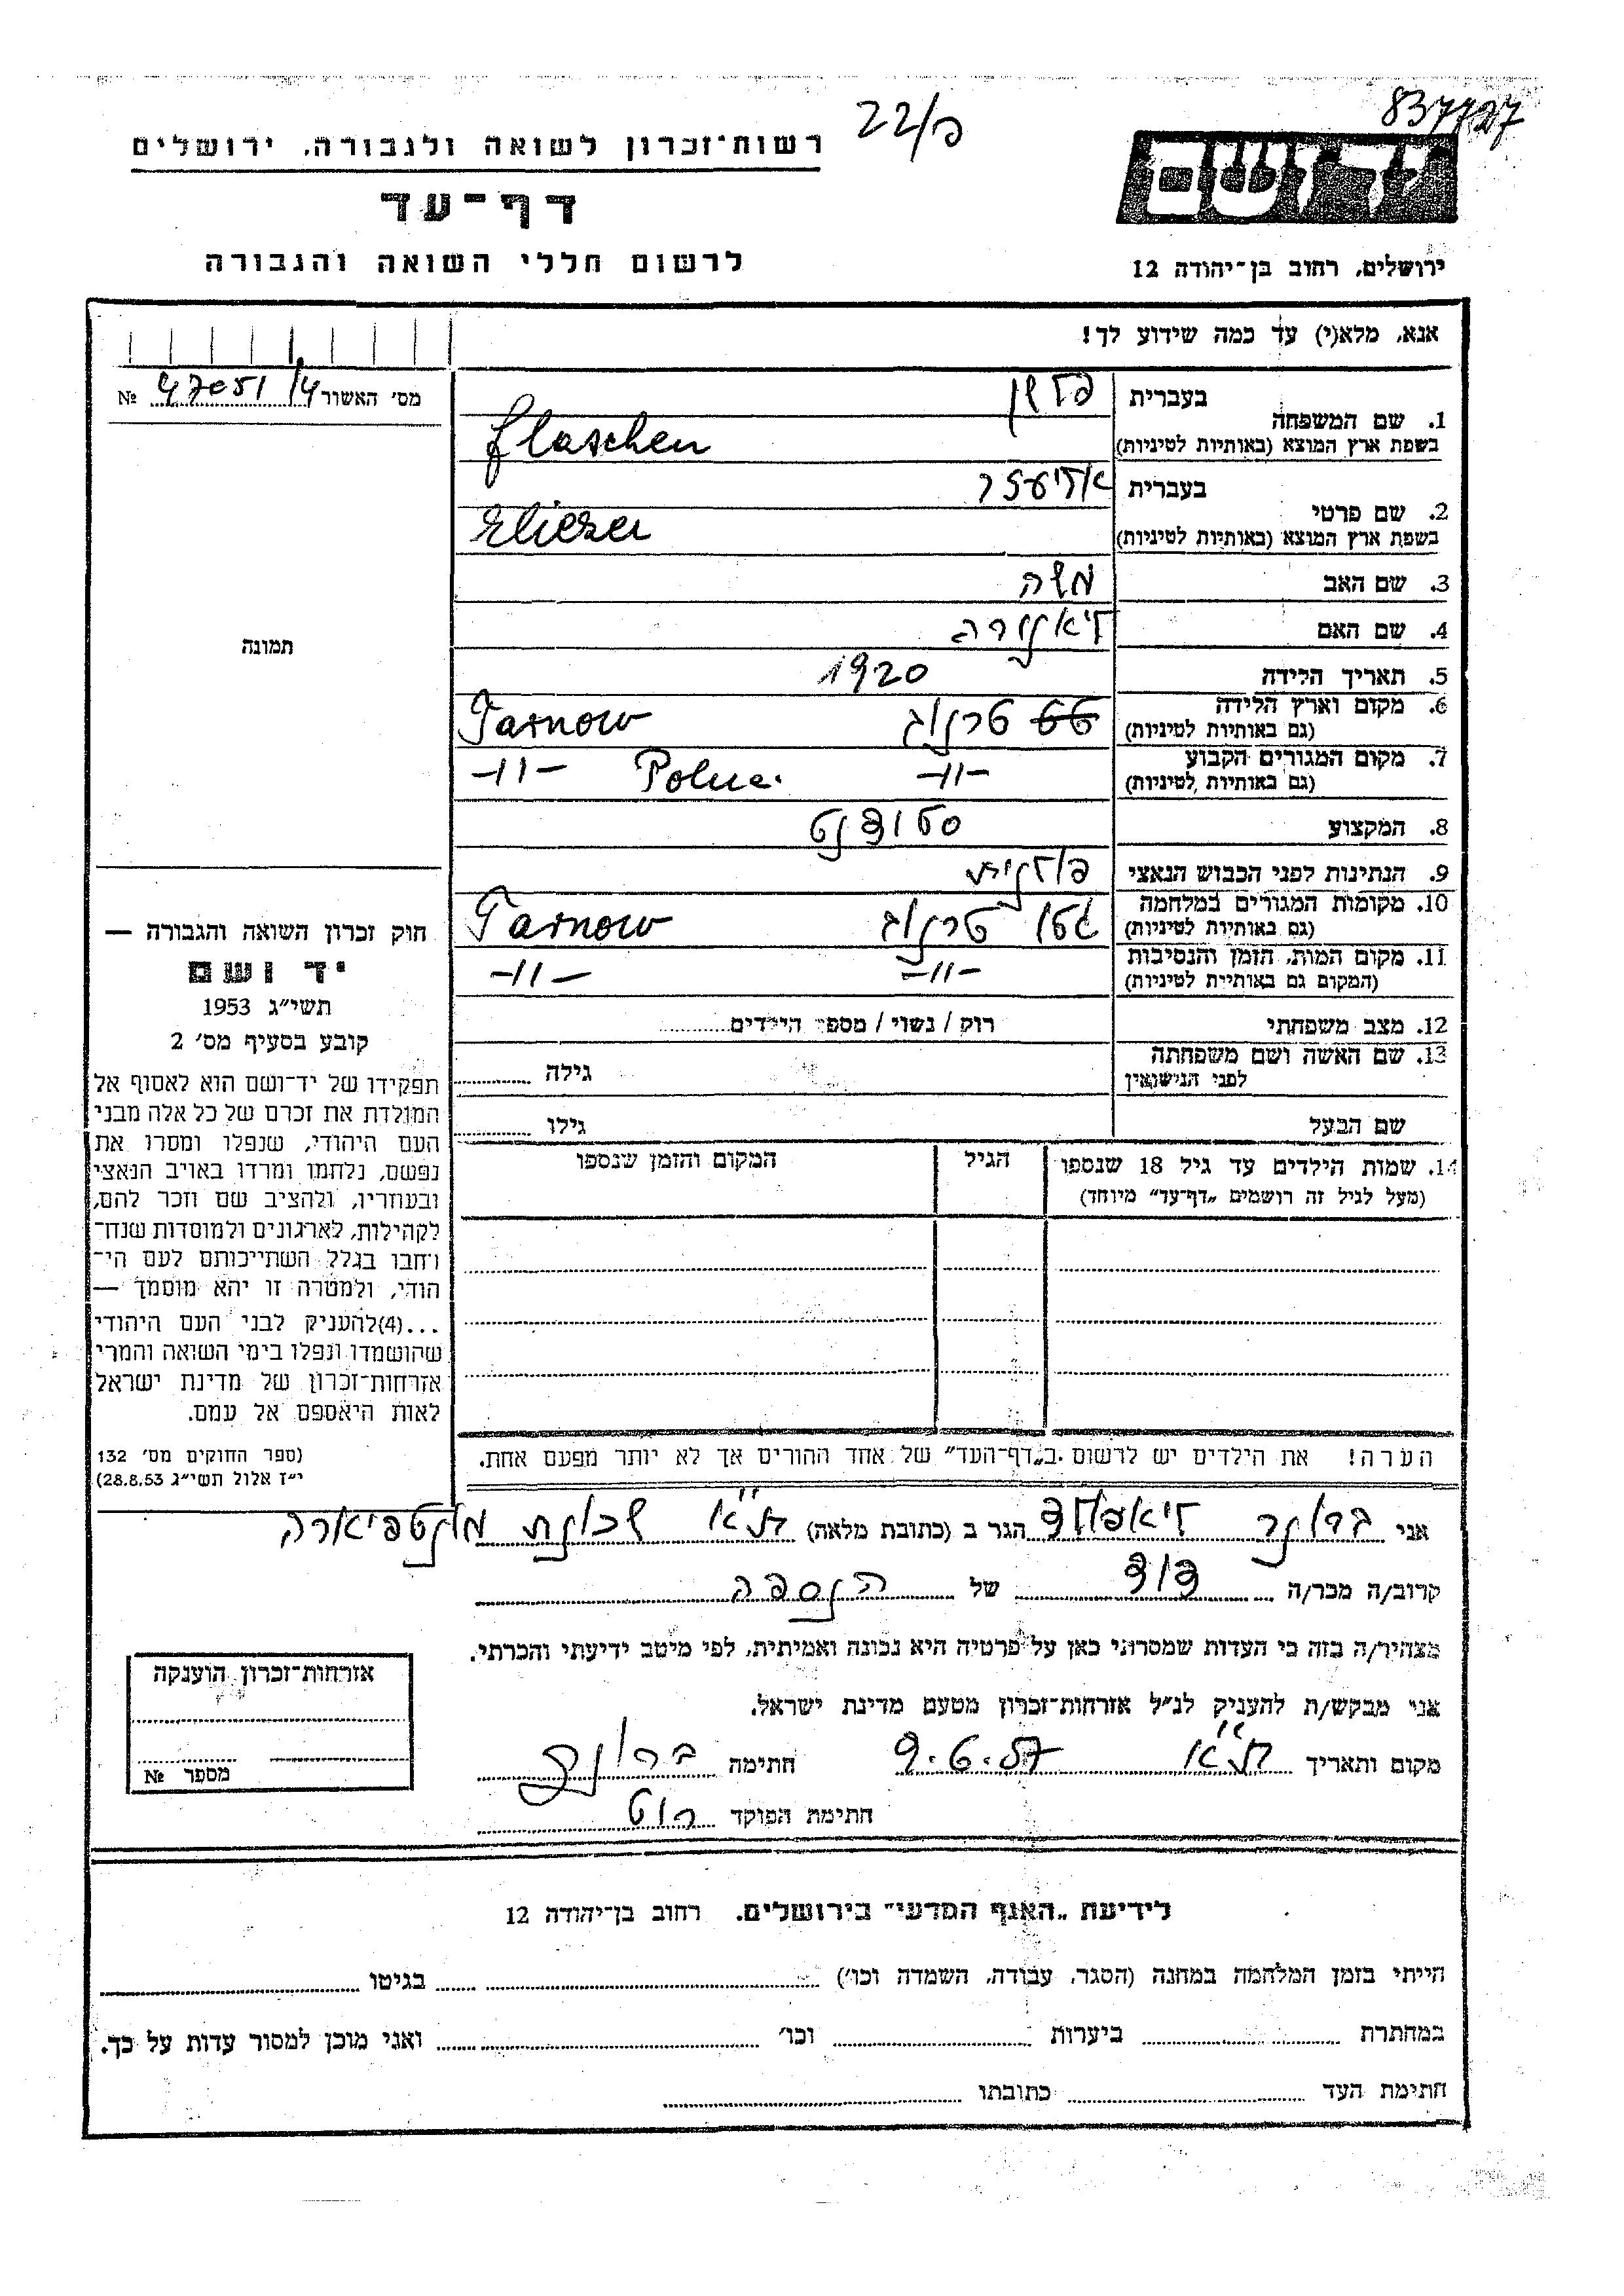 837727
22/פ
רשות־זכרון לשואה ולגבורה, ירושלים
דף־עד
לרשום חללי השואה והגבורה
יד ושם
ירושלים, רחוב בן־יהודה 12
אנא, מלא(י) עד כמה שידוע לך!
מס׳ האשור 47051/4 №
תמונה
1. שם המשפחה בעברית פלשן
בשפת ארץ המוצא (באותיות לטיניות) Flaschen
2. שם פרטי בעברית אליעזר
בשפת ארץ המוצא (באותיות לטיניות) Eliezer
3. שם האב משה
4. שם האם ליאנורה
5. תאריך הלידה 1920
6. מקום וארץ הלידה טרנוב Tarnow
(גם באותיות לטיניות)
7. מקום המגורים הקבוע -11- Polne. -11-
(גם באותיות לטיניות)
8. המקצוע סטודנט
9. הנתינות לפני הכבוש הנאצי פולנית
10. מקומות המגורים במלחמה גטו טרנוב Tarnow
(גם באותיות לטיניות)
11. מקום המות, הזמן והנסיבות -11- -11-
(המקום גם באותיות לטיניות)
12. מצב משפחתי רוק / נשוי / מספר הילדים
13. שם האשה ושם משפחתה גילה
לפני הנישואין
שם הבעל גילו
14. שמות הילדים עד גיל 18 שנספו הגיל המקום והזמן שנספו
(מעל לגיל זה רושמים „דף־עד" מיוחד)
הערה! את הילדים יש לרשום ב„דף־העד" של אחד ההורים אך לא יותר מפעם אחת.
חוק זכרון השואה והגבורה —
יד ושם
תשי״ג 1953
קובע בסעיף מס׳ 2
תפקידו של יד־ושם הוא לאסוף אל
המולדת את זכרם של כל אלה מבני
העם היהודי, שנפלו ומסרו את
נפשם, נלחמו ומרדו באויב הנאצי
ובעוזריו, ולהציב שם וזכר להם,
לקהילות, לארגונים ולמוסדות שנח־
רבו בגלל השתייכותם לעם הי־
הודי, ולמטרה זו יהא מוסמך —
...(4)להעניק לבני העם היהודי
שהושמדו ונפלו בימי השואה והמרי
אזרחות־זכרון של מדינת ישראל
לאות היאספם אל עמם.
(ספר החוקים מס׳ 132
י״ז אלול תשי״ג 28.8.53)
אני ברונר ליאפולד הגר ב (כתובת מלאה) ת"א שכונת מונטפיורה
קרוב/ה מכר/ה דוד של הנספה
מצהיר/ה בזה כי העדות שמסרתי כאן על פרטיה היא נכונה ואמיתית, לפי מיטב ידיעתי והכרתי.
אני מבקש/ת להעניק לנ״ל אזרחות־זכרון מטעם מדינת ישראל.
מקום ותאריך ת"א 9.6.57 חתימה ברונר
חתימת הפוקד רוט
אזרחות־זכרון הוענקה
מספר №
לידיעת „האגף המדעי" בירושלים, רחוב בן־יהודה 12
הייתי בזמן המלחמה במחנה (הסגר, עבודה, השמדה וכו׳) בגיטו
במחתרת ביערות וכו׳ ואני מוכן למסור עדות על כך.
חתימת העד כתובתו